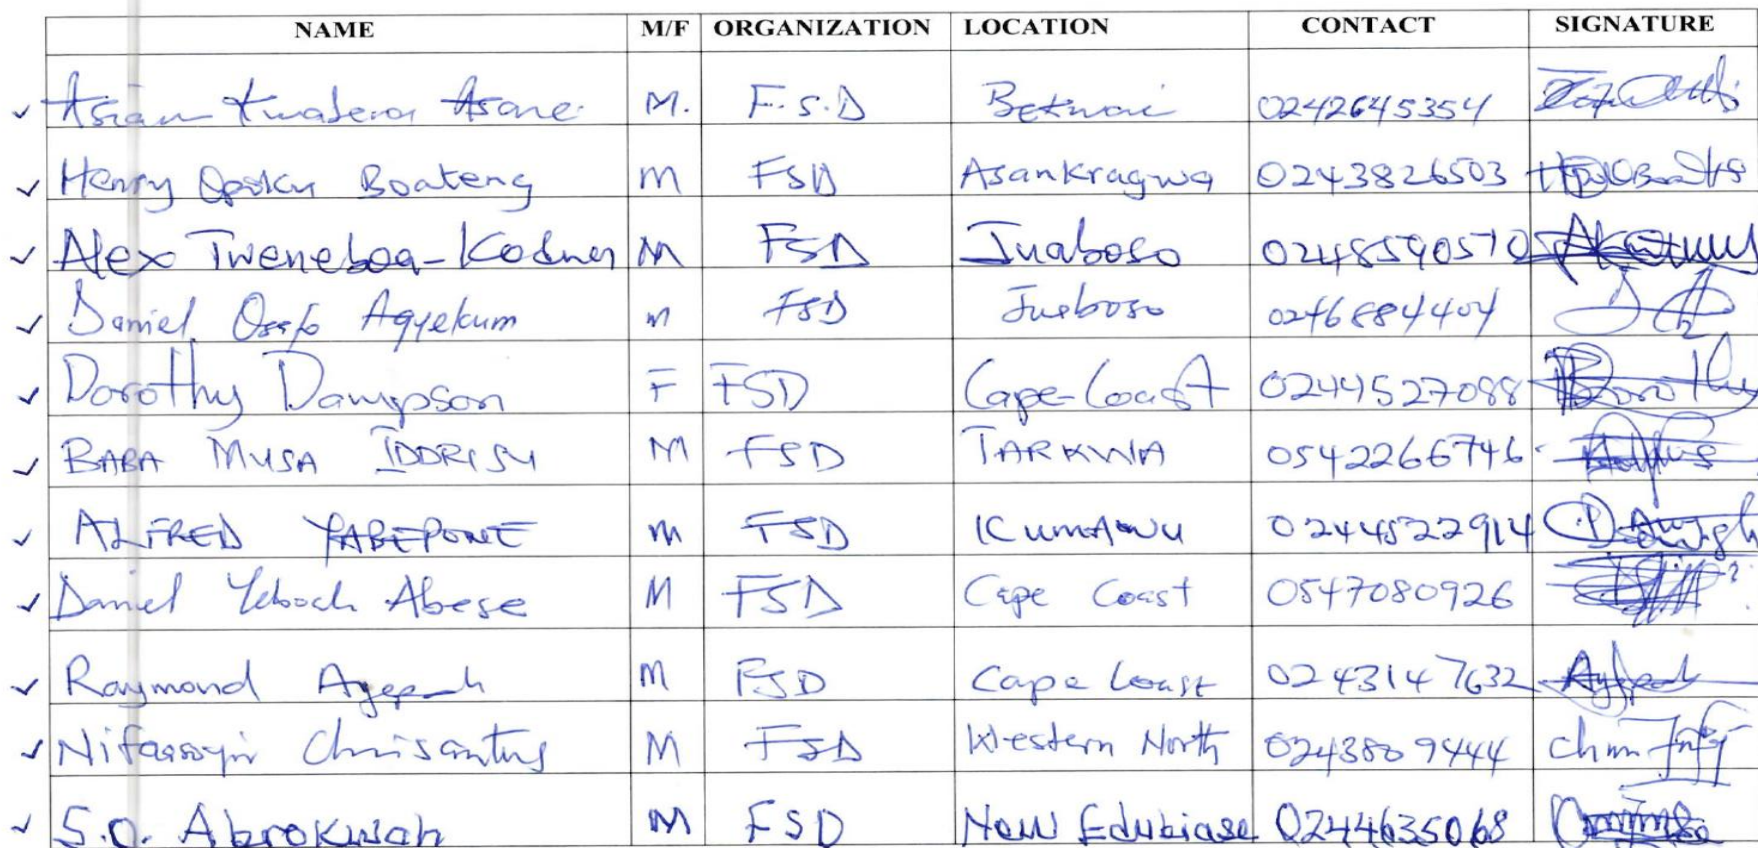 NAME M/F ORGANIZATION LOCATION CONTACT SIGNATURE
Asare M. F.S.D Bekwai 0242645354
Henry Opoku Boateng M FSD Asankragwa 0243826503
Alex Tweneboa-Koduah M FSD Juaboso 0248590570
Daniel Osafo Agyekum M FSD Juaboso 0246884404
Dorothy Dampson F FSD Cape-Coast 0244527088 Dorothy
BABA MUSA IDDRISU M FSD TARKWA 0542266746
ALFRED YABEPONE M FSD KUMAWU 0244522914
Daniel Yeboah Abese M FSD Cape Coast 0547080926
Raymond M FSD Cape Coast 0243147632
Chrisantus M FSD Western North 0243809444
S.O. Abrokwah M FSD New Edubiase 0244635068